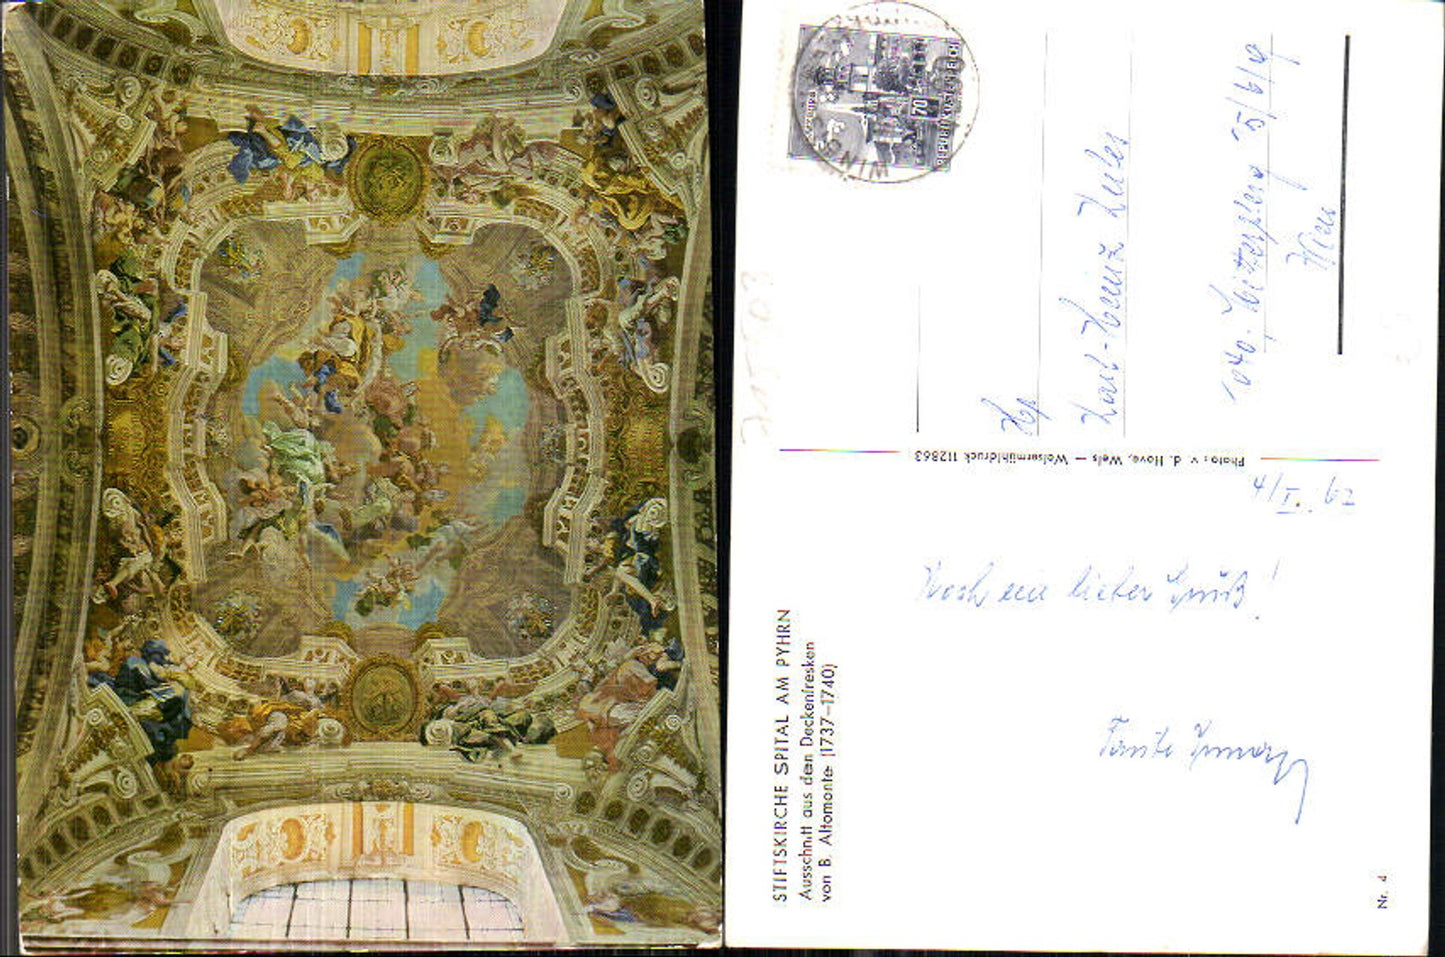 STIFTSKIRCHE SPITAL AM PYHRN
Ausschnitt aus den Deckenfresken
von B. Altomonte (1737–1740)
Nr. 4
Photo: v. d. Hove, Wels – Welsermühldruck 112863
REPUBLIK ÖSTERREICH
70
4/I. 62
Noch ein lieber Gruß!
Tante
Karl-Heinz
1040
5/6/9
Wien
715503